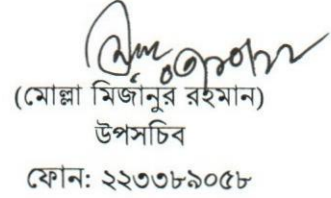 (মোল্লা মির্জানুর রহমান)
উপসচিব
ফোন: ২২৩৩৮৯০৫৮